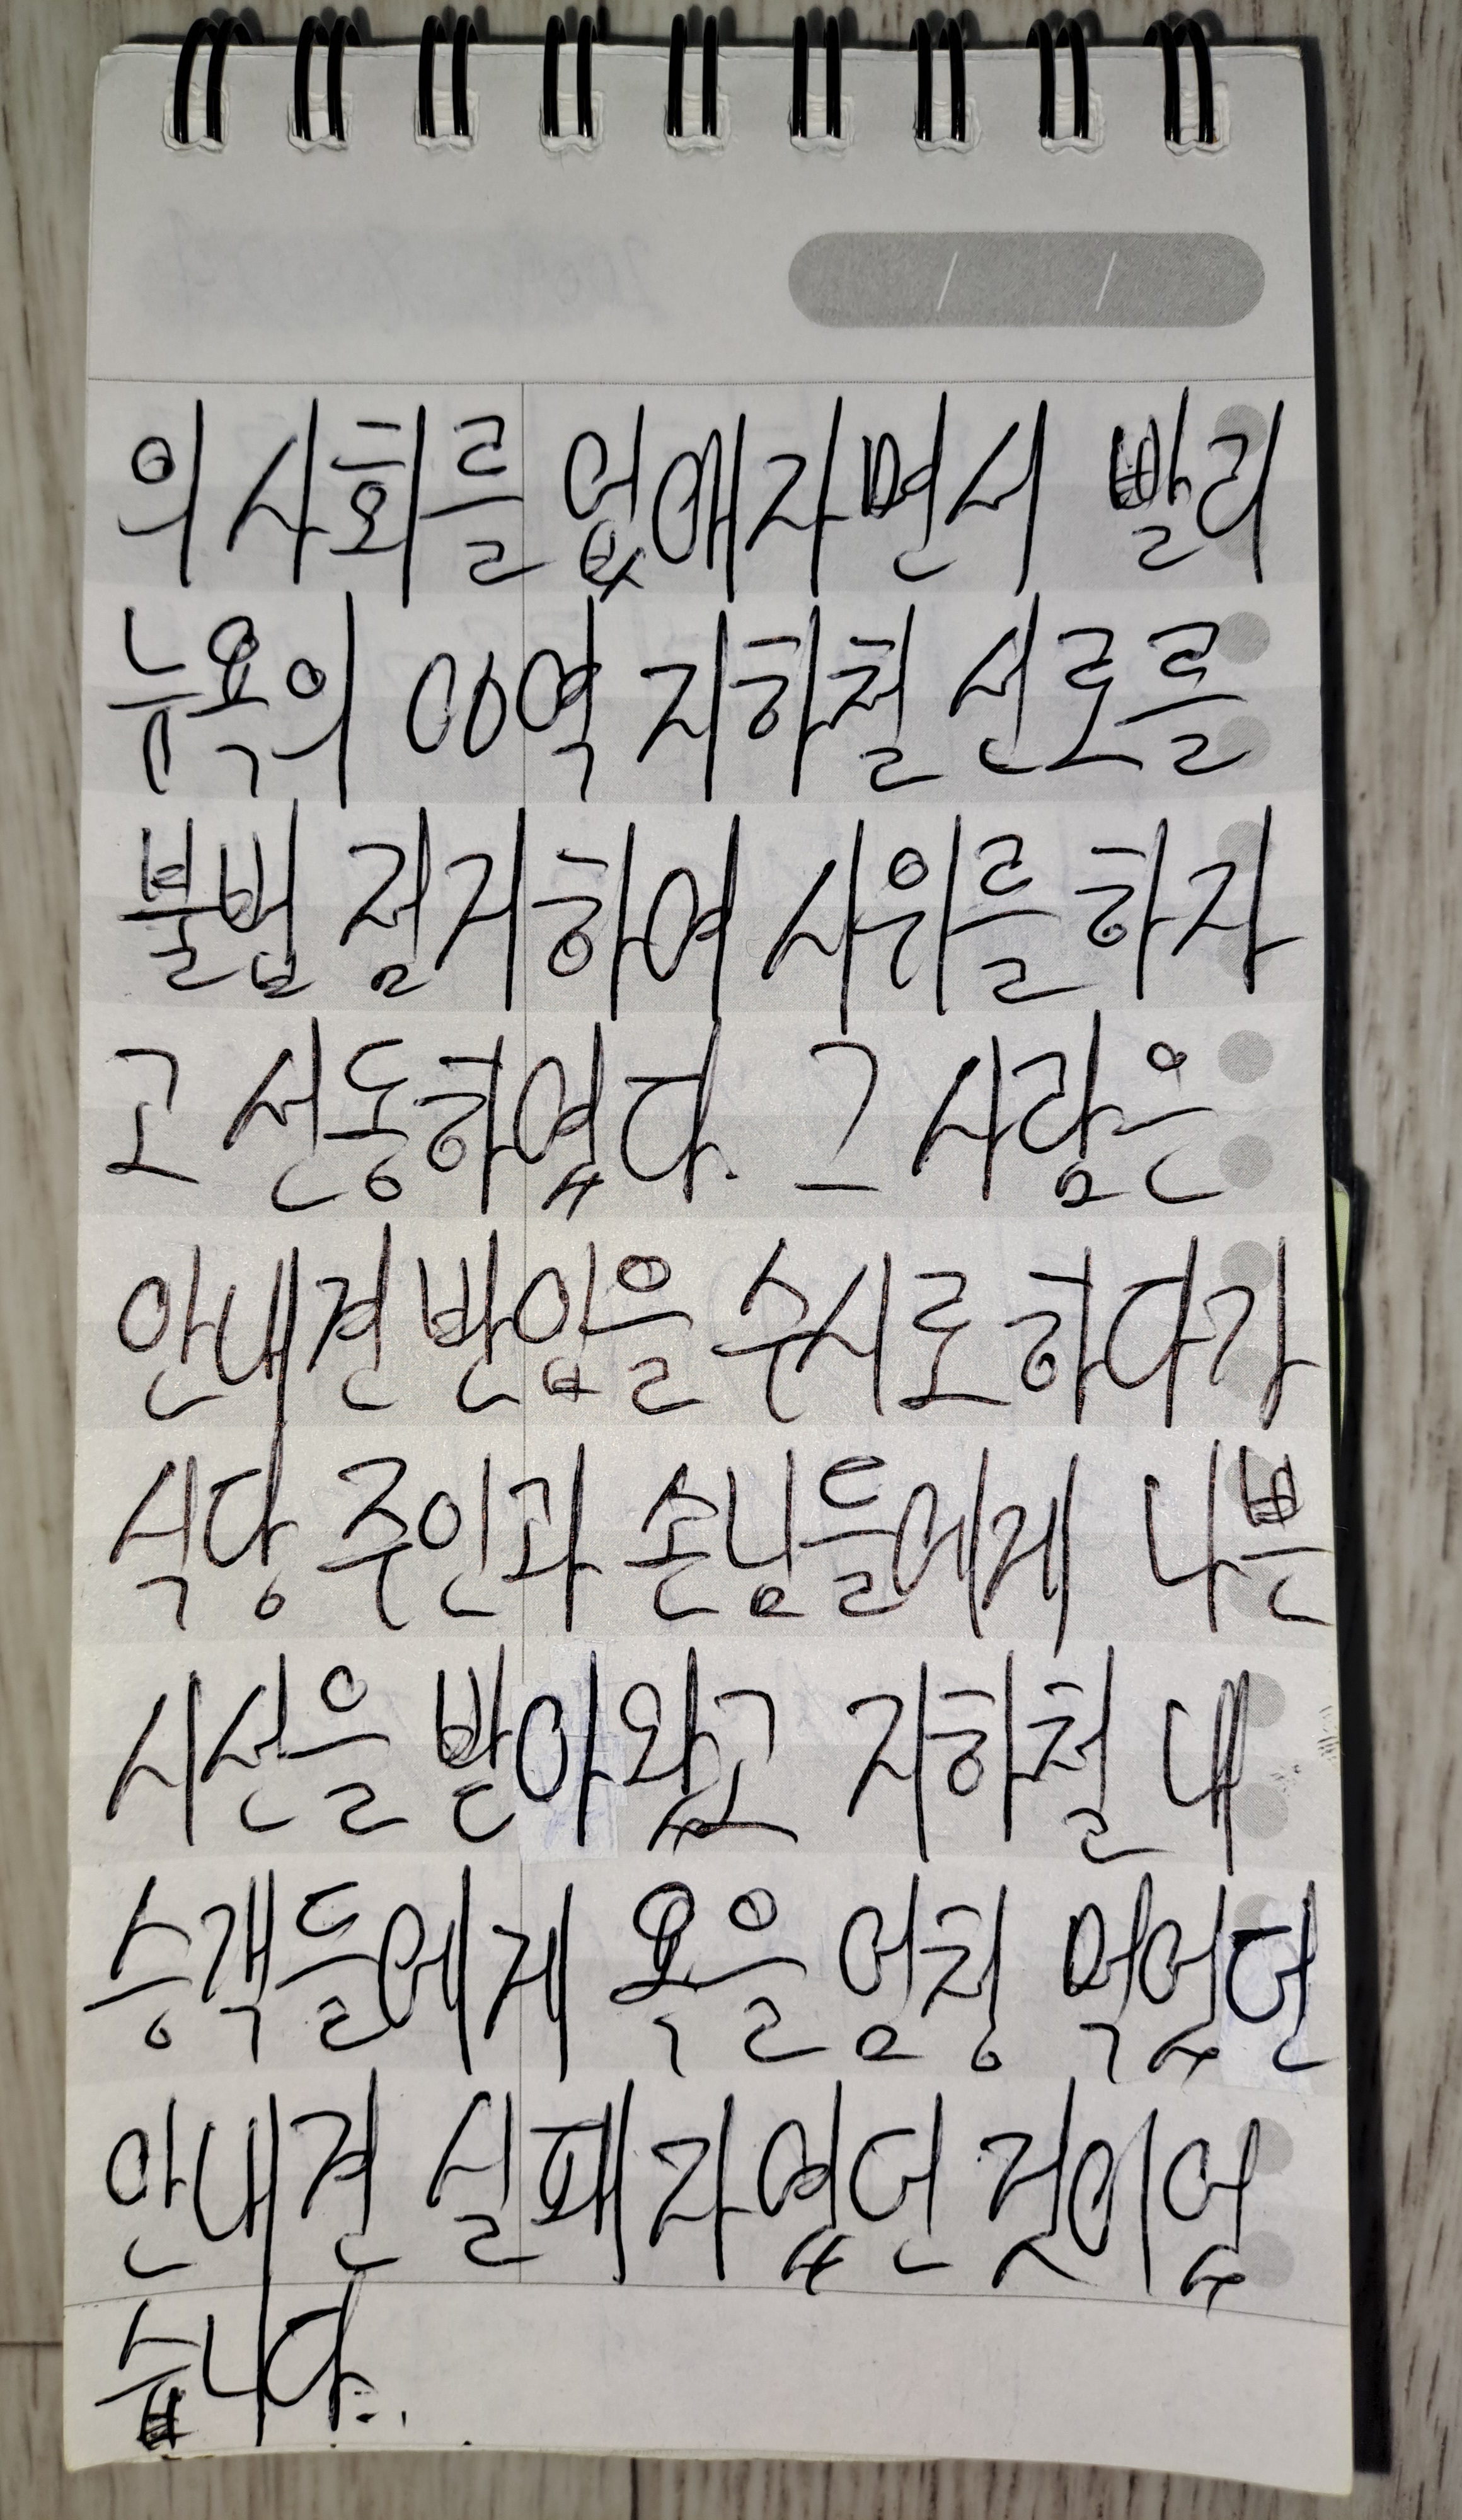 의 사회를 없애자면서 빨리
뉴욕의 00역 지하철 선로를
불법 점거하여 시위를 하자
고 선동하였다. 그 사람은
안내견 반입을 수시로 하다가
식당 주인과 손님들에게 나쁜
시선을 받아왔고 지하철 내
승객들에게 욕을 엄청 먹었던
안내견 실패자였던 것이었
습니다.